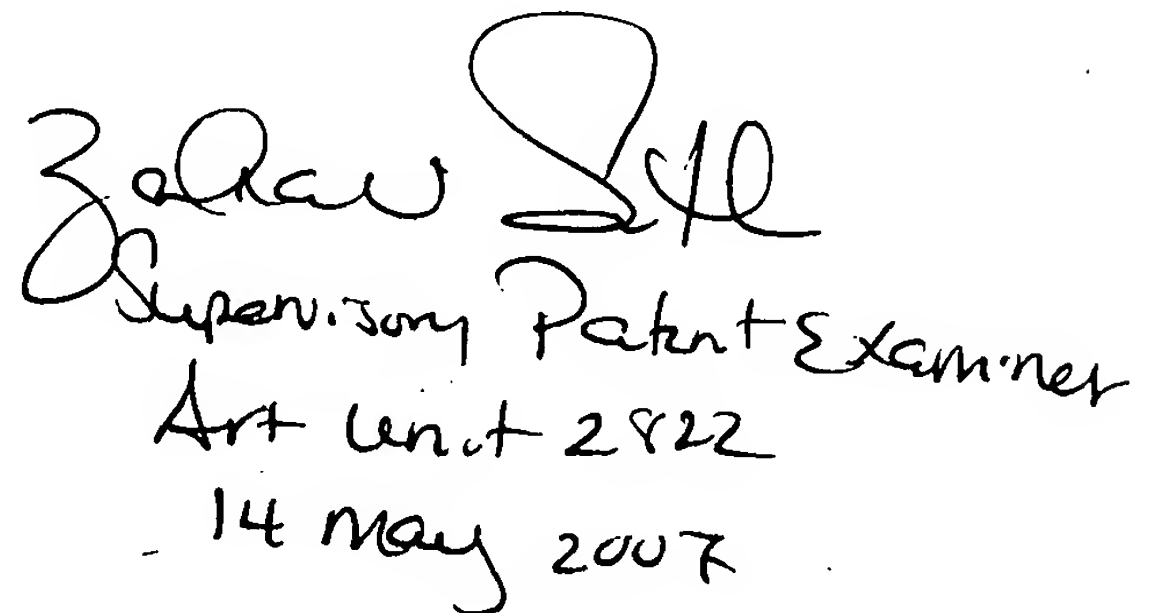 Supervisory Patent Examiner
Art Unit 2822
14 May 2007